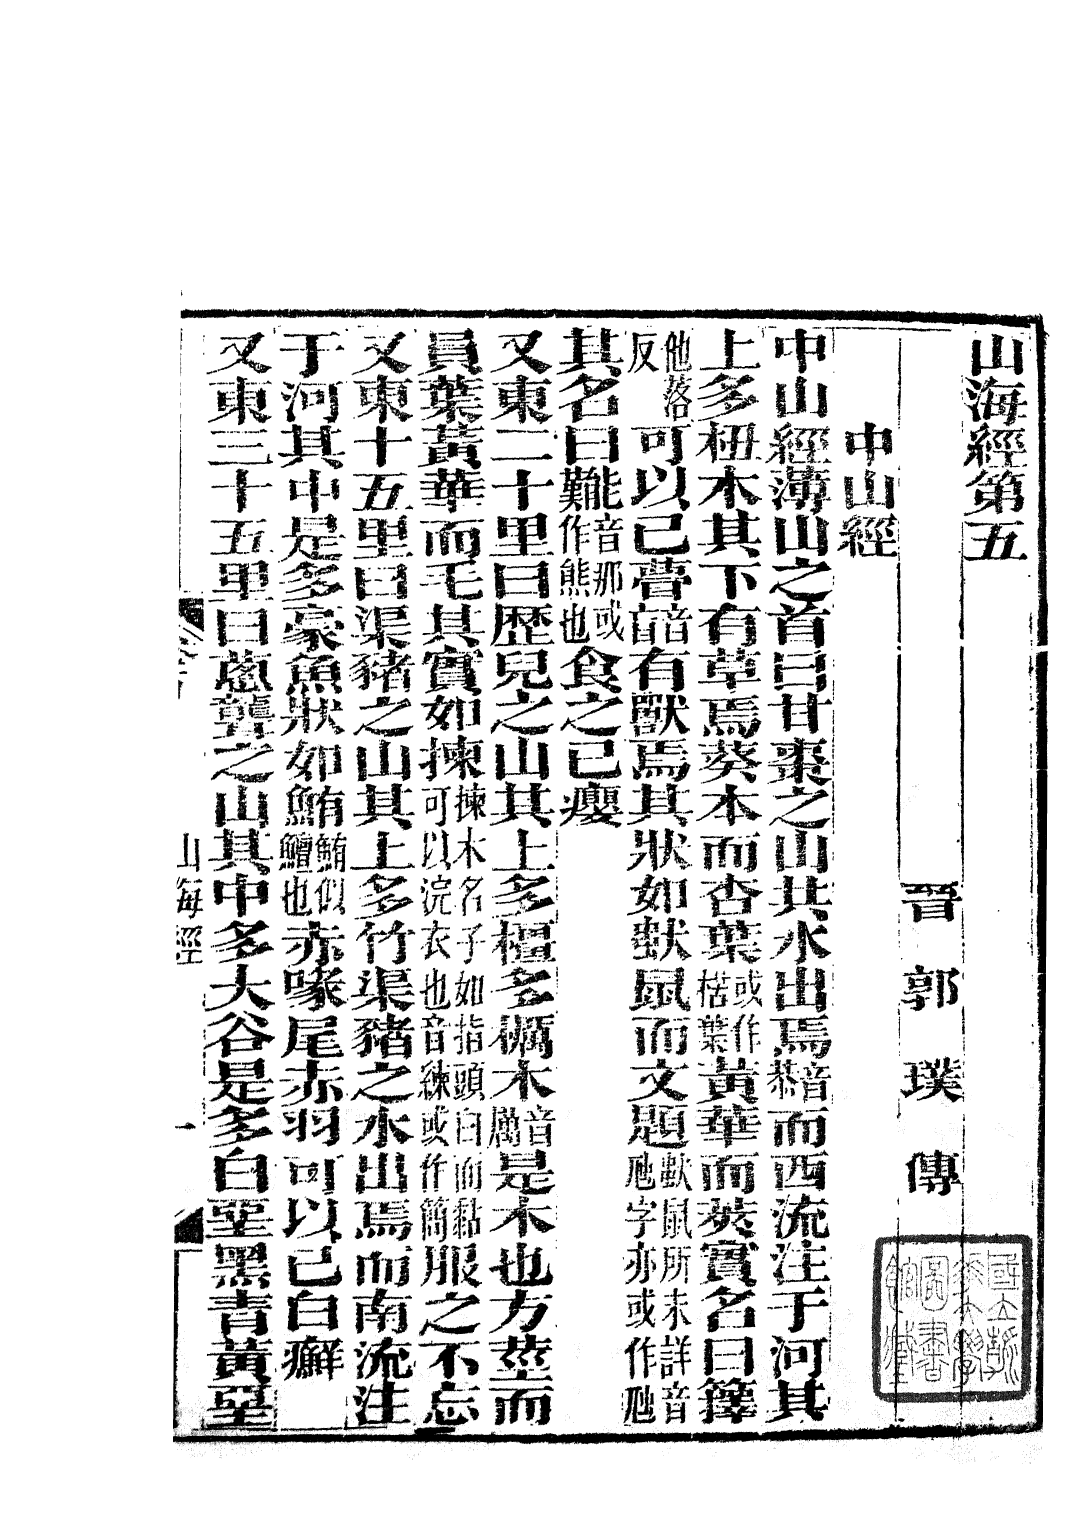 山海經第五
晉　郭　璞　傳
中山經
中山經薄山之首曰甘棗之山共水出焉音恭而西流注于河其
上多杻木其下有草焉葵本而杏葉或作楛葉黃華而莢實名曰籜
他落反可以已瞢音盲有獸焉其狀如䶂鼠而文題䶂鼠所未詳音虺字亦或作虺
其名曰㔮能音那或作熊也食之已癭
又東二十里曰歷兒之山其上多橿多櫔木音厲是木也方莖而
員葉黃華而毛其實如揀揀木名子如指頭白而黏可以浣衣也音練或作簡服之不忘
又東十五里曰渠豬之山其上多竹渠豬之水出焉而南流注
于河其中是多豪魚狀如鮪鮪似鱣也赤喙尾赤羽可以已白癬
又東三十五里曰蔥聾之山其中多大谷是多白堊黑青黃堊
山海經
一
國立
大學
圖書
館藏